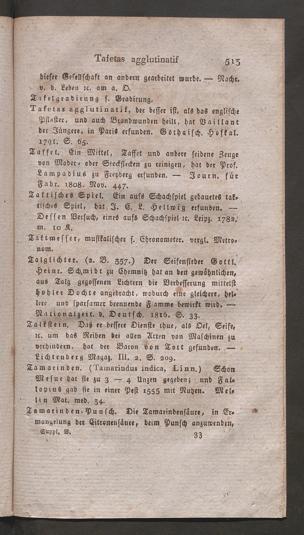 Tafetas agglutinatif 513
dieser Gesellschaft an andern gearbeitet wurde. — Nachr.
v. d. Leben ꝛc. am a. O.
Tafelgradirung s. Gradirung.
Tafetas agglutinatif, der besser ist, als das englische
Pflaster, und auch Brandwunden heilt, hat Vaillant
der Jüngere, in Paris erfunden. Gothaisch. Hofkal.
1791. S. 65.
Taffet. Ein Mittel, Taffet und andere seidene Zeuge
von Mader- oder Stockflecken zu reinigen, hat der Prof.
Lampadius zu Freyberg erfunden. — Journ. für
Fabr. 1808. Nov. 447.
Taktisches Spiel. Ein aufs Schachspiel gebauetes tak-
tisches Spiel, hat J. C. L. Hellwig erfunden. —
Dessen Versuch, eines aufs Schachspiel ꝛc. Leipz. 1782,
m. 10 K.
Taktmesser, musikalischer s. Chronometer. vergl. Metro-
nom.
Talglichter. (a. B. 357.) Der Seifensieder Gottl.
Heinr. Schmidt zu Chemnitz hat an den gewöhnlichen,
aus Talg gegossenen Lichtern die Verbesserung mittelst
hohler Dochte angebracht, wodurch eine gleichere, hel-
lere und sparsamer brennende Flamme bewirkt wird. —
Nationalzeit. d. Deutsch. 1816. S. 33.
Talkstein. Daß er bessere Dienste thue, als Oel, Seife,
ꝛc. um das Reiben bei allen Arten von Maschinen zu
verhindern, hat der Baron von Tott gefunden. —
Lichtenberg Magaz. III. 2. S. 209.
Tamarinden. (Tamarindus indica, Linn.) Schon
Mesue hat sie zu 3 — 4 Unzen gegeben; und Fal-
lopius gab sie in einer Pest 1555 mit Nutzen. Mel-
lin Mat. med. 34.
Tamarinden-Punsch. Die Tamarindensäure, in Er-
mangelung der Citronensäure, beim Punsch anzuwenden,
Suppl. B. 33